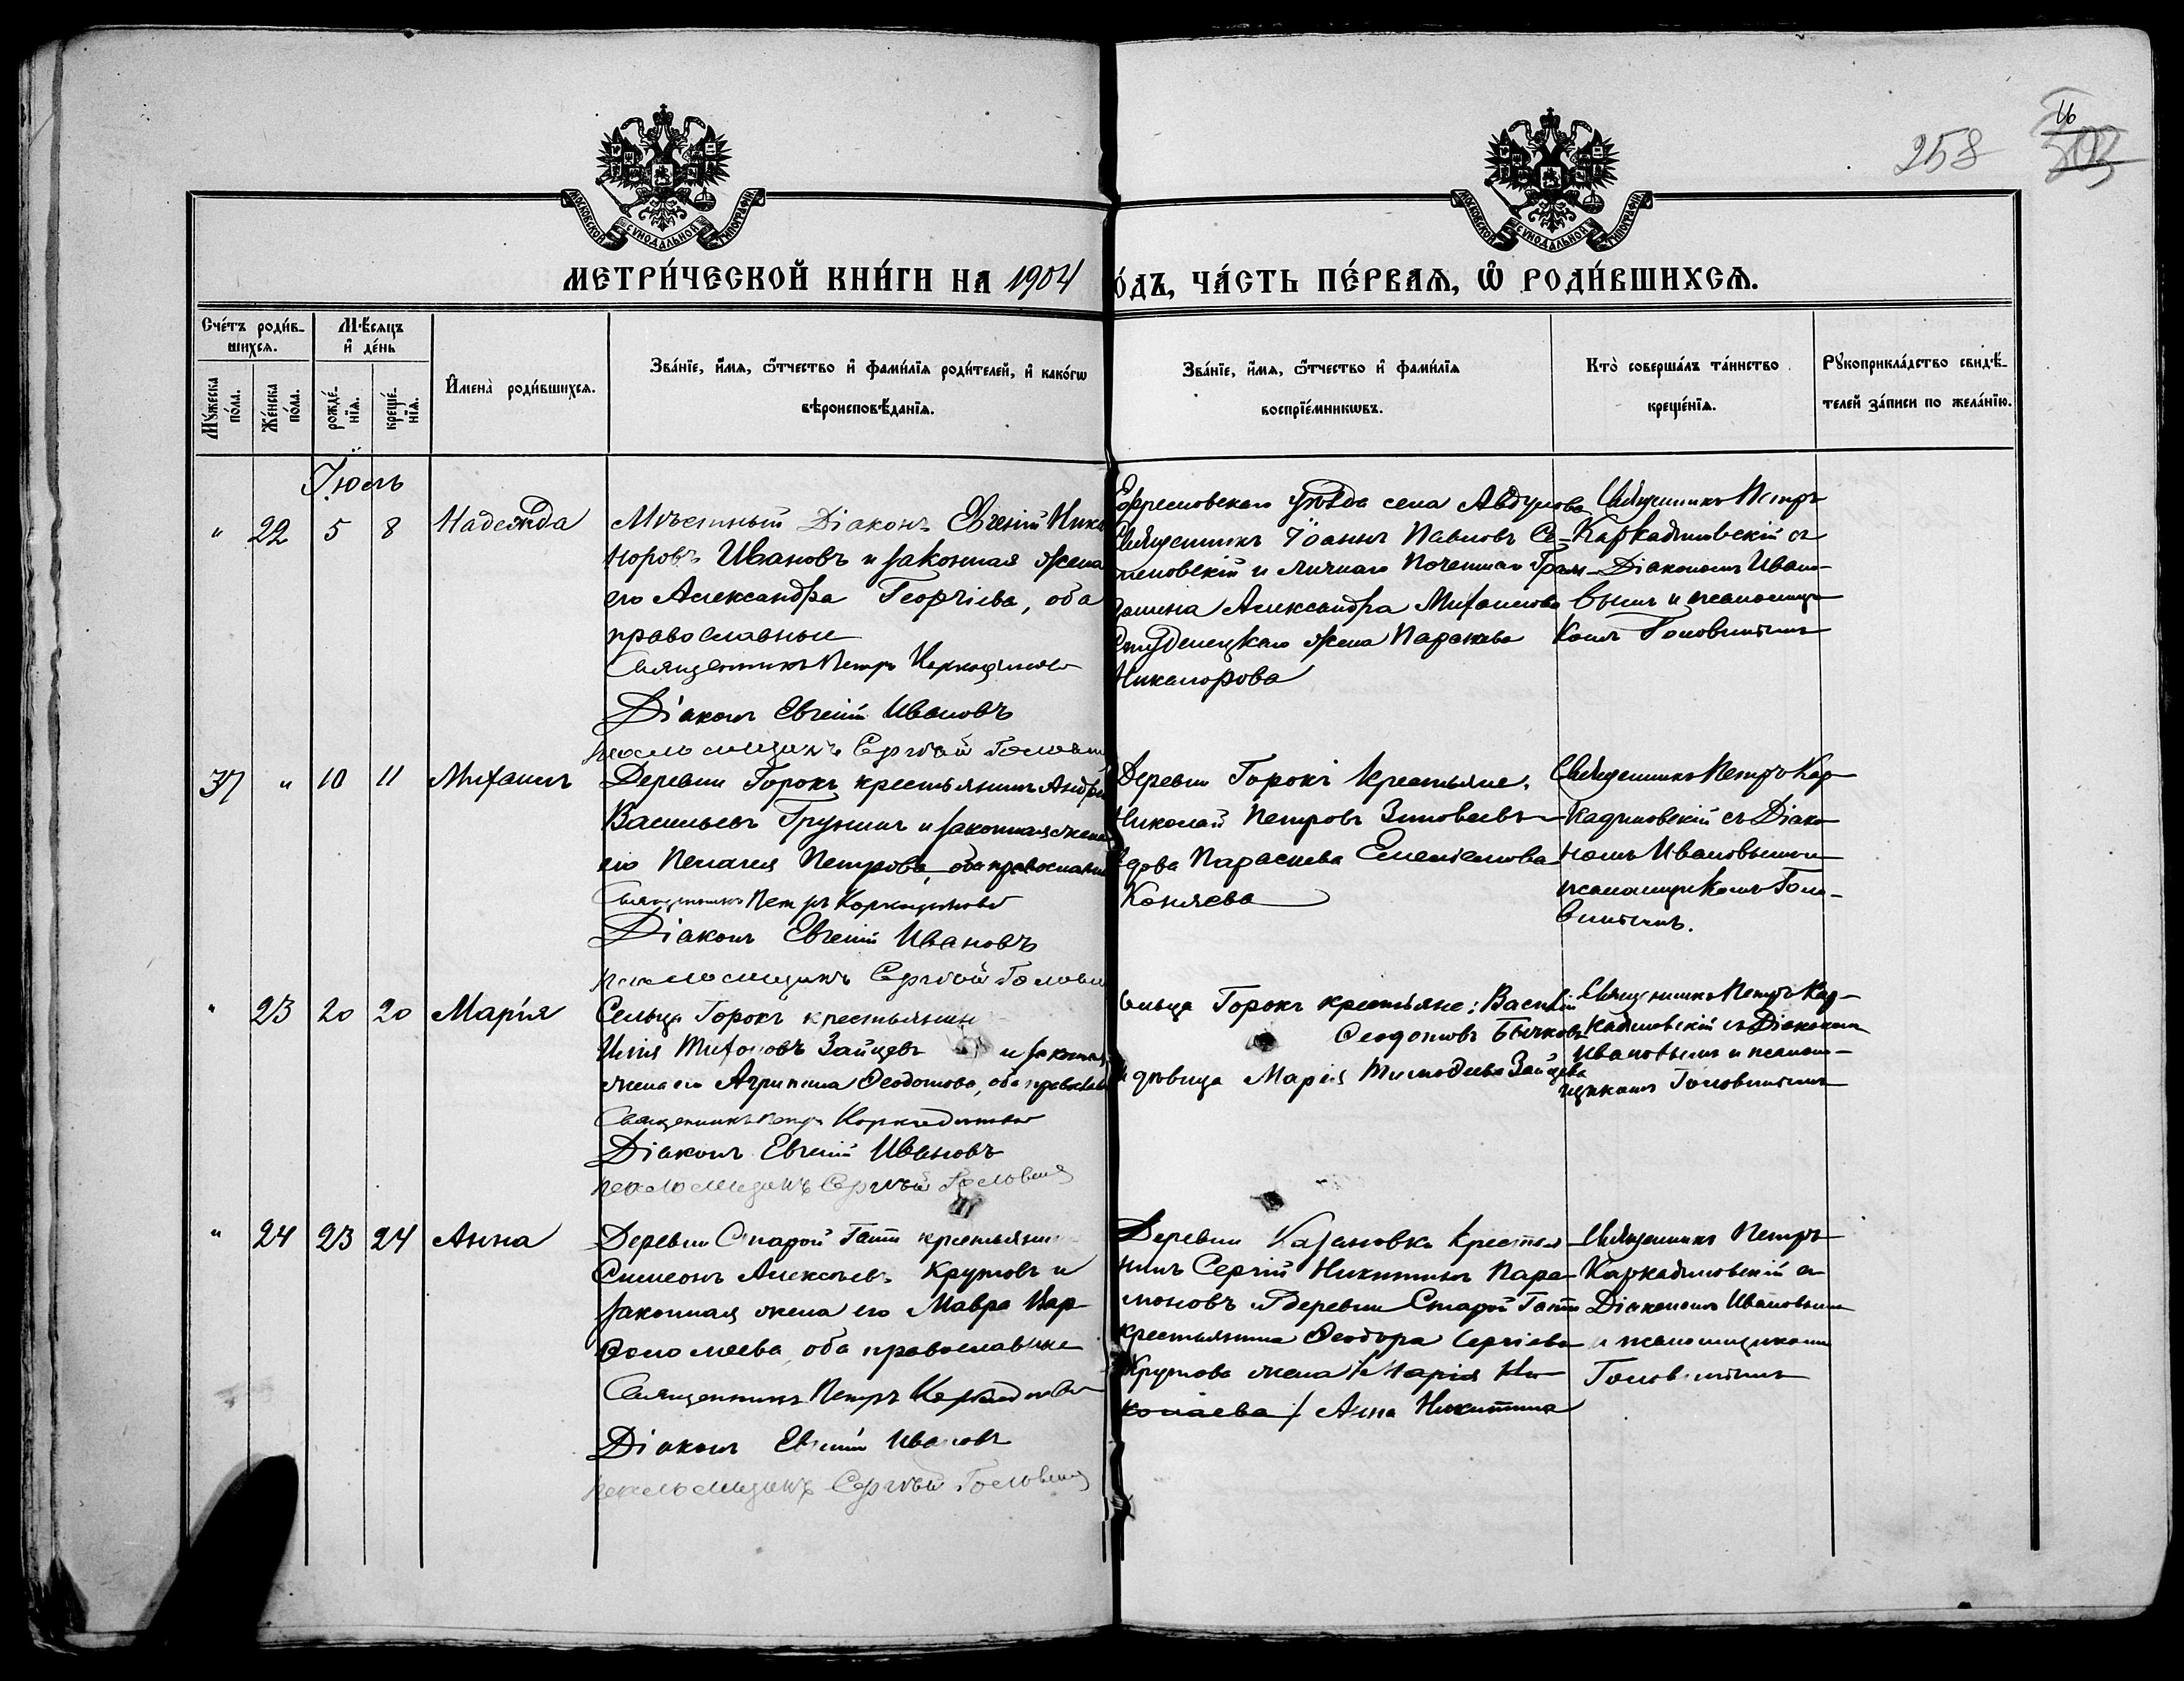 258
МОСКОВСКОЙ СѴНОДАЛЬНОЙ ТИПОГРАФІИ
МОСКОВСКОЙ СѴНОДАЛЬНОЙ ТИПОГРАФІИ
МЕТРИ́ЧЕСКОЙ КНИ́ГИ НА 1904
О́ДЪ, ЧА́СТЬ ПЕ́РВАѦ, Ѽ РОДИ́ВШИХСѦ.
Сче́тъ роди́в-
шихсѧ.
Мꙋ́жеска по́ла.
Же́нска по́ла.
Мѣ́сѧцъ
и҆ де́нь
рожде́-
нїѧ.
креще́-
нїѧ.
И҆мена̀ роди́вшихсѧ.
Зва́нїе, и҆́мѧ, ѻ҆́тчество и҆ фами́лїѧ роди́телей, и҆ како́гѡ
вѣроисповѣ́данїѧ.
Зва́нїе, и҆́мѧ, ѻ҆́тчество и҆ фами́лїѧ
воспрїе́мникѡвъ.
Кто̀ соверша́лъ та́инство
креще́нїѧ.
Рꙋкоприкла́дство свидѣ́-
телей за́писи по жела́нїю.
Іюль
" 22 5 8 Надежда
Мѣстный Діаконъ Евгеній Ника
норовъ Ивановъ и законная жена
его Александра Георгіева, оба
православные
Священникъ Петръ
Діаконъ Евгеній Ивановъ
псаломщикъ Сергѣй Головин
Ефремовскаго уѣзда села Авдулова
Священникъ Іоаннъ Павловъ Се-
меновскій и личнаго почетнаго Граж-
данина Александра Михаилова
Студенецкаго жена Параскева
Никанорова
Священникъ Петръ
Каркадиновскій съ
Діакономъ Ивано-
вымъ и псаломщи-
комъ Головинымъ
37 " 10 11 Михаилъ
Деревни Горокъ крестьянинъ Андрей
Васильевъ Грунинъ и законная жена
его Пелагея Петрова, оба православные
Священникъ Петръ
Діаконъ Евгеній Ивановъ
псаломщикъ Сергѣй Головин
Деревни Горокъ крестьяне:
Николай Петровъ Зиновьевъ
вдова Параскева Емельянова
Коняева
Священникъ Петръ Кар-
кадиновскій съ Діако-
номъ Ивановымъ и
псаломщикомъ Голо-
винымъ.
" 23 20 20 Марія
Сельца Горокъ крестьянинъ
Илія Тихоновъ Зайцевъ и законная
жена его Агрипина Ѳеодотова, оба православные
Священникъ Петръ
Діаконъ Евгеній Ивановъ
псаломщикъ Сергѣй Головинъ
Сельца Горокъ крестьяне: Василій
Ѳеодотовъ Бычковъ
и дѣвица Марія Тимоѳеева Зайцева
Священникъ Петръ Кар-
кадиновскій съ Діакономъ
Ивановымъ и псалом-
щикомъ Головинымъ
" 24 23 24 Анна
Деревни Старой Гати крестьянинъ
Симеонъ Алексѣевъ Крутовъ и
законная жена его Мавра Вар-
ѳоломеева, оба православные
Священникъ Петръ
Діаконъ Евгеній Ивановъ
псаломщикъ Сергѣй Головинъ
Деревни Казановки крестья-
нинъ Сергій Никитинъ Пара-
моновъ и деревни Старой Гати
крестьянина Ѳеодора Сергіева
Крутова жена /Марія Ни-
колаева/ Анна Никитина
Священникъ Петръ
Каркадиновскій съ
Діакономъ Ивановымъ
и псаломщикомъ
Головинымъ